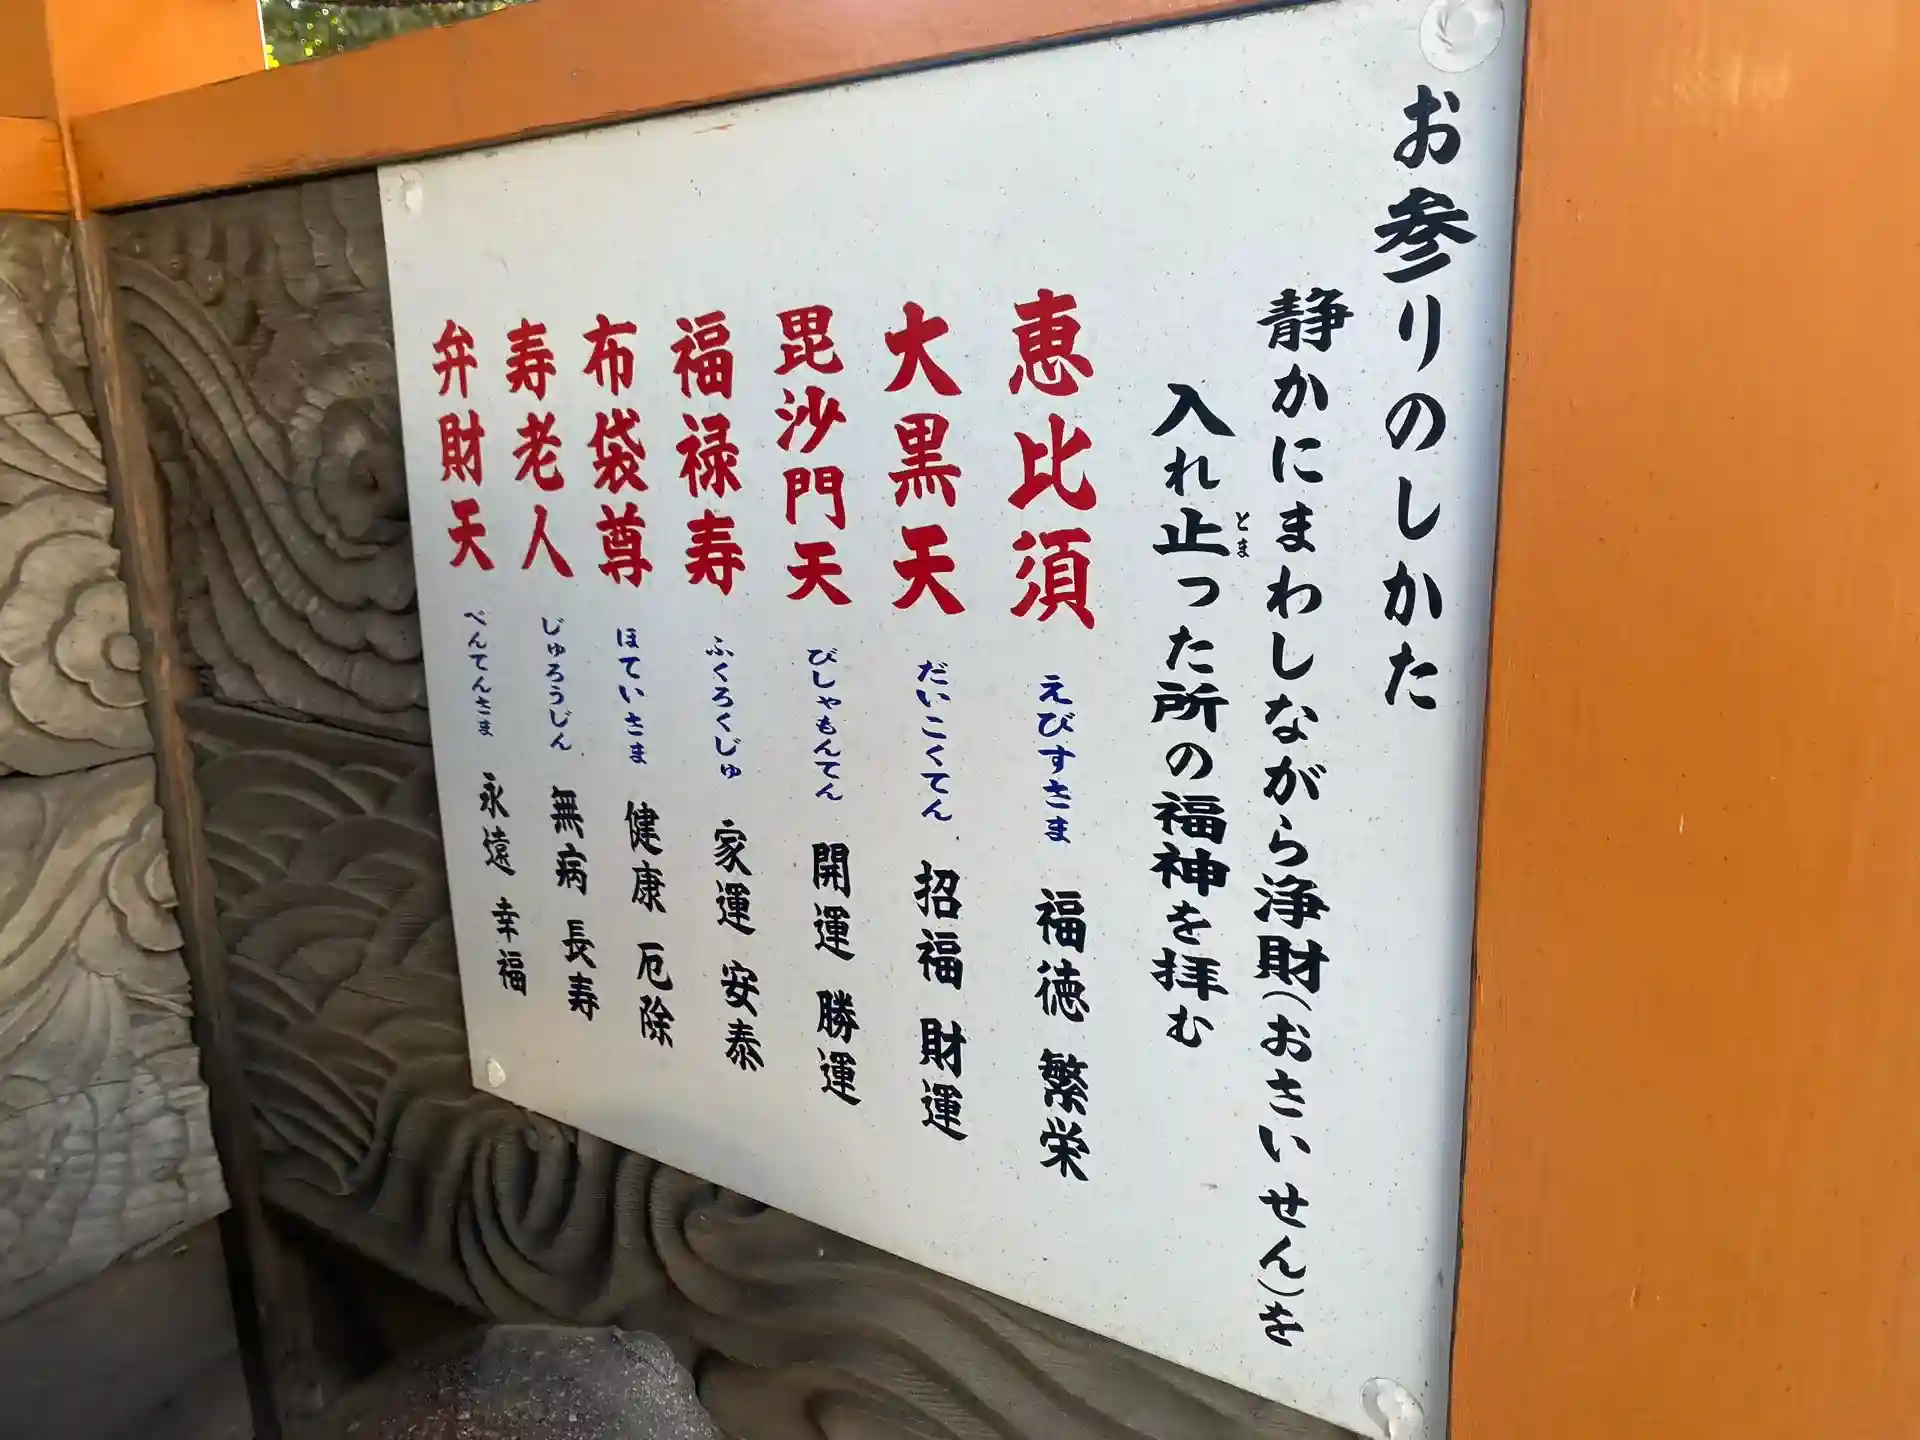 お参りのしかた
静かにまわしながら浄財(おさいせん)を
入れ止った所の福神を拝む
とま
恵比須 えびすさま 福徳 繁栄
大黒天 だいこくてん 招福 財運
毘沙門天 びしゃもんてん 開運 勝運
福禄寿 ふくろくじゅ 家運 安泰
布袋尊 ほていさま 健康 厄除
寿老人 じゅろうじん 無病 長寿
弁財天 べんてんさま 永遠 幸福